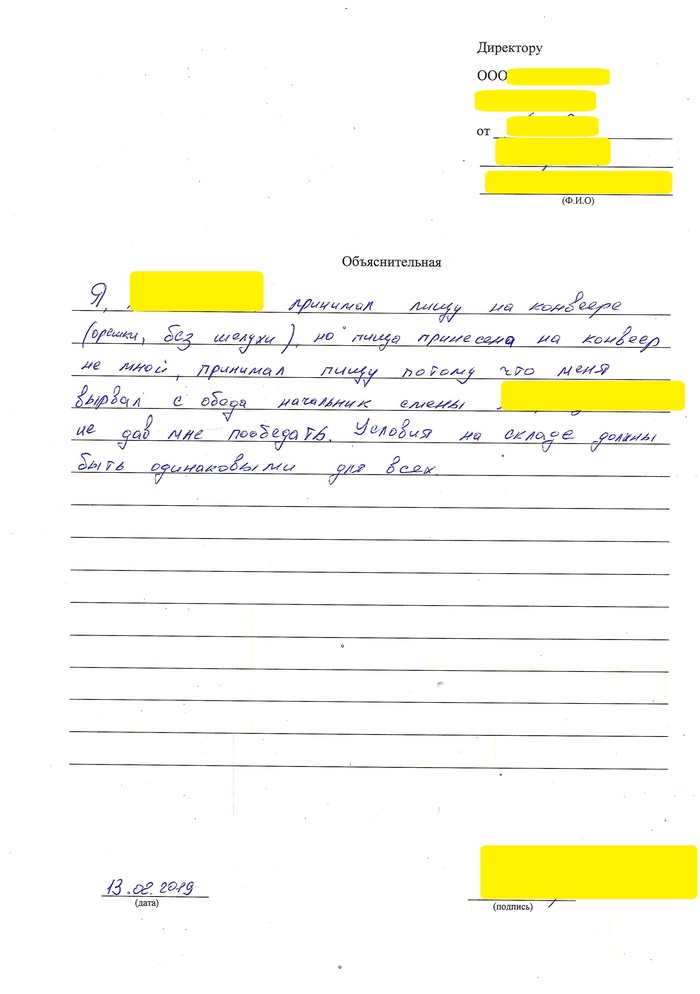 Директору
ООО
от
(Ф.И.О)
Объяснительная
Я, принимал пищу на конвеере
(орешки, без шелухи), но пища принесена на конвеер
не мной, принимал пищу потому что меня
вырвал с обеда начальник смены
не дав мне пообедать. Условия на складе должны
быть одинаковыми для всех
13.02.2019
(дата)
(подпись)